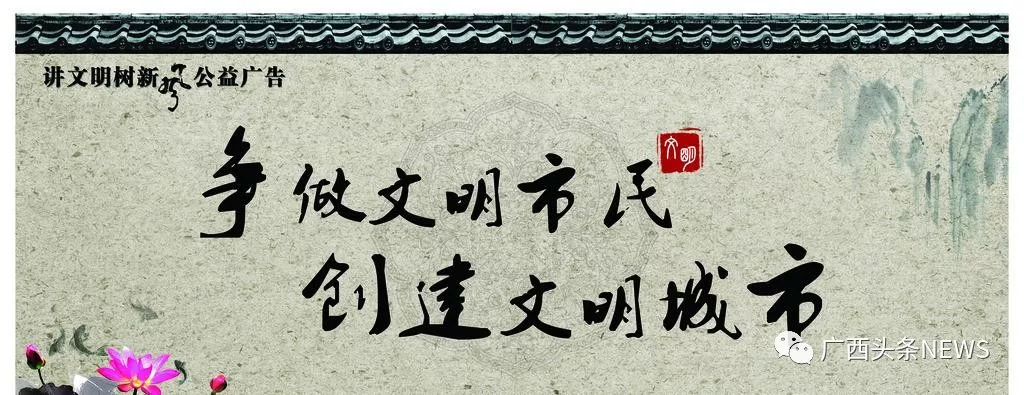 讲文明树新风公益广告
争做文明市民
文明
创建文明城市
广西头条NEWS